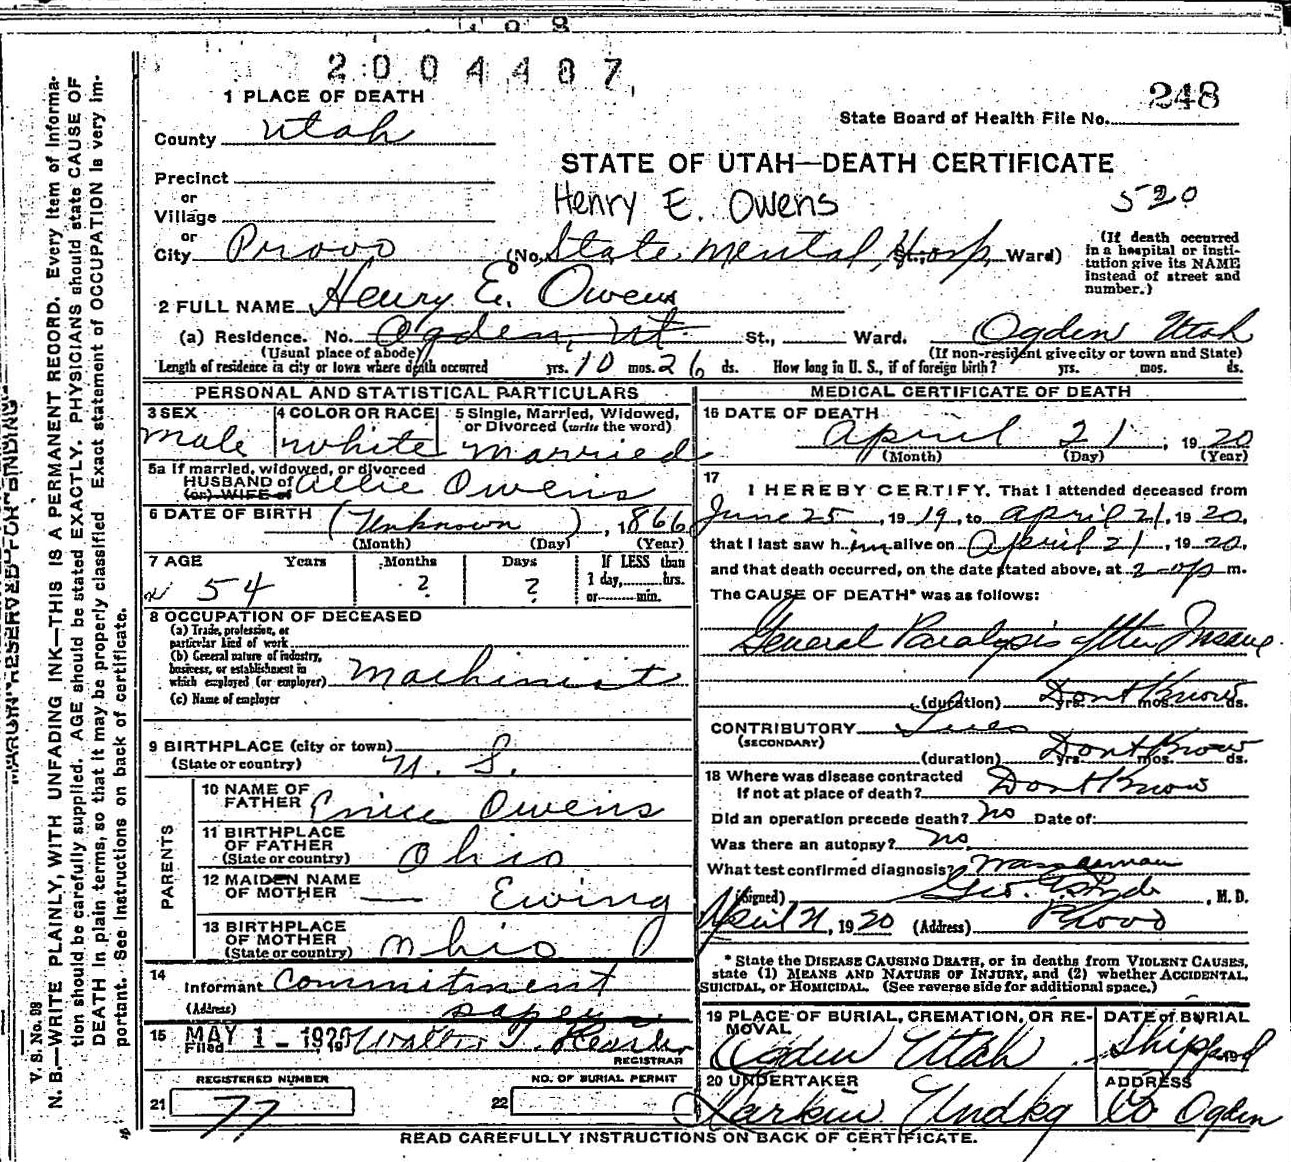 2004487
1 PLACE OF DEATH
County Utah
Precinct
or
Village
or
City Provo
State Board of Health File No. 248
STATE OF UTAH—DEATH CERTIFICATE
Henry E. Owens
520
(No. State Mental Hosp. St., Ward)
(If death occurred
in a hospital or insti-
tution give its NAME
instead of street and
number.)
2 FULL NAME Henry E. Owens
(a) Residence. No. Ogden, Ut. St., Ward. Ogden Utah
(Usual place of abode) (If non-resident give city or town and State)
Length of residence in city or town where death occurred yrs. 10 mos. 26 ds. How long in U. S., if of foreign birth? yrs. mos. ds.
PERSONAL AND STATISTICAL PARTICULARS
3 SEX
Male
4 COLOR OR RACE
White
5 Single, Married, Widowed,
or Divorced (write the word)
Married
5a If married, widowed, or divorced
HUSBAND of Allie Owens
(or) WIFE of
6 DATE OF BIRTH (Unknown), 1866
(Month) (Day) (Year)
7 AGE Years Months Days If LESS than
1 day, hrs.
or min.
54 ? ?
8 OCCUPATION OF DECEASED
(a) Trade, profession, or
particular kind of work
(b) General nature of industry,
business, or establishment in
which employed (or employer) Machinist
(c) Name of employer
9 BIRTHPLACE (city or town)
(State or country) U. S.
PARENTS
10 NAME OF
FATHER Owens
11 BIRTHPLACE
OF FATHER
(State or country) Ohio
12 MAIDEN NAME
OF MOTHER — Ewing
13 BIRTHPLACE
OF MOTHER
(State or country) Ohio
14
Informant Commitment
(Address) papers
15 Filed MAY 1 - 1920, 19 Walter T.
REGISTRAR
REGISTERED NUMBER
21 77
NO. OF BURIAL PERMIT
22
MEDICAL CERTIFICATE OF DEATH
16 DATE OF DEATH
April 21, 1920
(Month) (Day) (Year)
17
I HEREBY CERTIFY, That I attended deceased from
June 25, 1919, to April 21, 1920,
that I last saw him alive on April 21, 1920,
and that death occurred, on the date stated above, at 2-0 p m.
The CAUSE OF DEATH* was as follows:
General Paralysis of the Insane
(duration) Dont Know yrs. mos. ds.
CONTRIBUTORY Lues
(SECONDARY)
(duration) Dont Know yrs. mos. ds.
18 Where was disease contracted
If not at place of death? Dont Know
Did an operation precede death? No Date of:
Was there an autopsy? No
What test confirmed diagnosis? Wasserman
(Signed) Geo. , M. D.
April 21, 1920 (Address) Provo
* State the DISEASE CAUSING DEATH, or in deaths from VIOLENT CAUSES,
state (1) MEANS AND NATURE OF INJURY, and (2) whether ACCIDENTAL,
SUICIDAL, or HOMICIDAL. (See reverse side for additional space.)
19 PLACE OF BURIAL, CREMATION, OR RE-
MOVAL
Ogden Utah
DATE of BURIAL
Shipped
20 UNDERTAKER
Larkin Undkg Co
ADDRESS
Ogden
READ CAREFULLY INSTRUCTIONS ON BACK OF CERTIFICATE.
MARGIN RESERVED FOR BINDING
V. S. No. 98
N. B.—WRITE PLAINLY, WITH UNFADING INK—THIS IS A PERMANENT RECORD. Every item of informa-
tion should be carefully supplied. AGE should be stated EXACTLY. PHYSICIANS should state CAUSE OF
DEATH in plain terms, so that it may be properly classified. Exact statement of OCCUPATION is very im-
portant. See instructions on back of certificate.